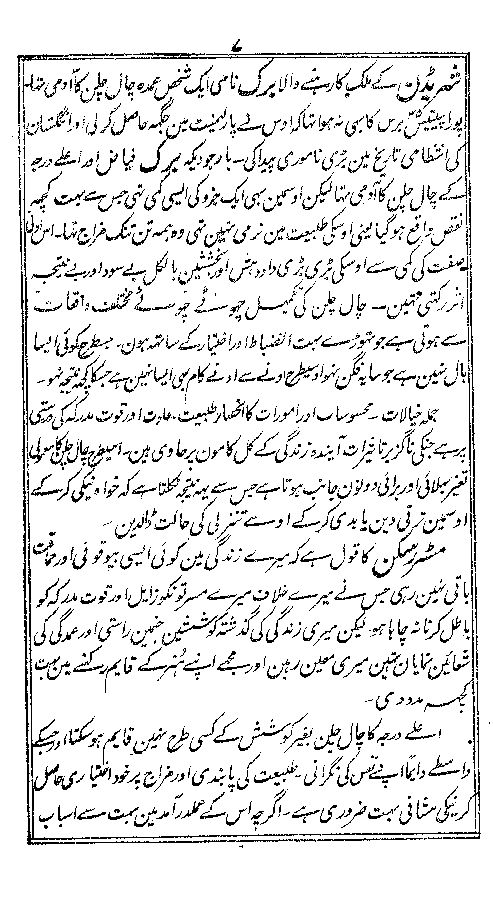 ۷
شہر ٹڈن کے ملک کا رہنے والا برک نامی ایک شخص عمدہ چال چلن کا آدمی تہا۔
پورا پینتیس برس کا بہی نہ ہوا تہا کہ اوس نے پارلیمنٹ مین جگہ حاصل کر لی اور انگلستان
کی انتظامی تاریخ مین بڑی ناموری پیدا کی۔ باوجودیکہ برک فیاض اور اعلے درجہ
کے چال چلن کا آدمی تہا لیکن اوسمین بہی ایک ہنر کی ایسی کمی تہی جس سے بہت کچہہ
نقص واقع ہوگیا یعنی اوسکی طبیعت مین نرمی نہین تہی وہ ہمہ تن تنک مزاج تہا۔ اس
صفت کی کمی سے اوسکی بڑی بڑی داد دہش اور بخششین بالکل بے سود اور بے نتیجہ
اثر رکہتی تہین۔ چال چلن کی تکمیل چہوٹے چہوٹے مختلف واقعات
سے ہوتی ہے جو تہوڑے بہت انضباط اور اختیار کے ساتہہ ہون۔ جسطرح کوئی ایسا
بال نہین ہے جو سایہ فگن نہو اوسیطرح ادنے سے ادنے کام بہی ایسا نہین ہے جسکا کچہہ نتیجہ نہو۔
جملہ خیالات۔ محسوسات اور امورات کا انحصار طبیعت۔ عادت اور قوت مدرکہ کی درستی
پر ہے جنکی ناگزیر تاثیرات آیندہ زندگی کے کل کامون پر حاوی ہین۔ اسیطرح چال چلن کا معمولی
تغیر بہلائی اور برائی دونون جانب ہوتا ہے جس سے یہہ نتیجہ نکلتا ہے کہ خواہ نیکی کرکے
اوسمین ترقی دین یا بدی کرکے اوسے تنزلی کی حالت مین ڈالدین۔
مسٹر رسکن کا قول ہے کہ میرے زندگی مین کوئی ایسی بیوقوفی اور حماقت
باقی نہین رہی جس نے میرے خلاف میرے مسرتونکو زایل اور قوت مدرکہ کو
باطل کرنا نہ چاہا ہو لیکن میری زندگی کی گذشتہ کوششین جنمین راستی اور عمدگی کی
شعائین نمایان تہین میری معین رہین اور مجہے اپنے ہنر کے قایم رکہنے مین بہت
کچہہ مدد دی۔
اعلے درجہ کا چال چلن بغیر کوشش کے کسی طرح نہین قایم ہوسکتا اور جسکے
واسطے دایماً اپنے نفس کی نگرانی۔ طبیعت کی پابندی اور مزاج پر خود اختیاری حاصل
کرنیکی مشاقی بہت ضروری ہے۔ اگرچہ اس کے عملدرآمد مین بہت سے اسباب